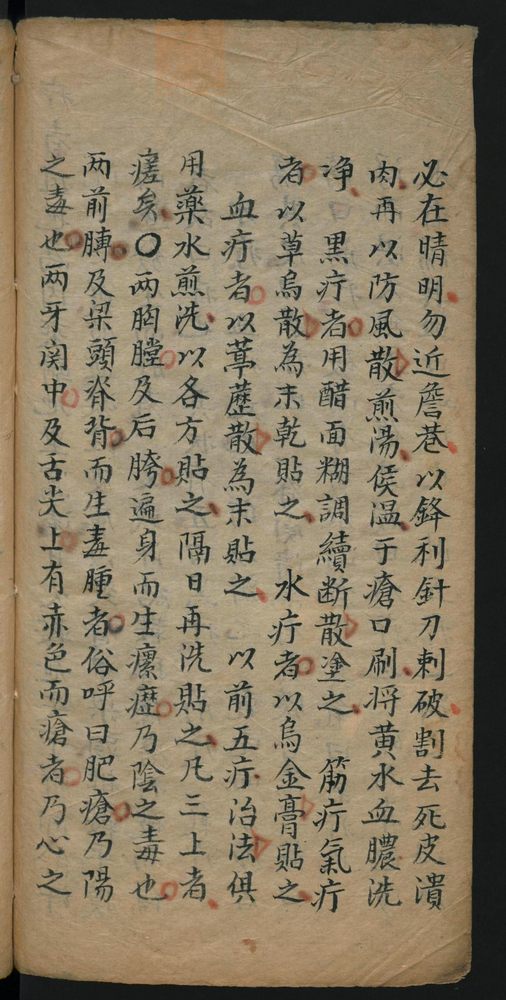 必在晴明勿近詹巷以鋒利針刀剌破割去死皮潰
肉再以防風散煎湯侯温于瘡口刷将黄水血膿洗
净曰 黒疔者用醋面糊調續断散塗之 筋疔氣疔
者以草烏散為末乾貼之 水疔者以烏金膏貼之
血疔者以葶藶散為末貼之 以前五疔治法俱
用藥水煎洗以各方貼之隔日再洗貼之凡三上者
瘥矣〇两胸膛及后胯遍身而生瘰癧乃陰之毒也
两前膊及梁頭脊背而生毒腫者俗呼曰肥瘡乃陽
之毒也两牙関中及舌尖上有赤色而瘡者乃心之